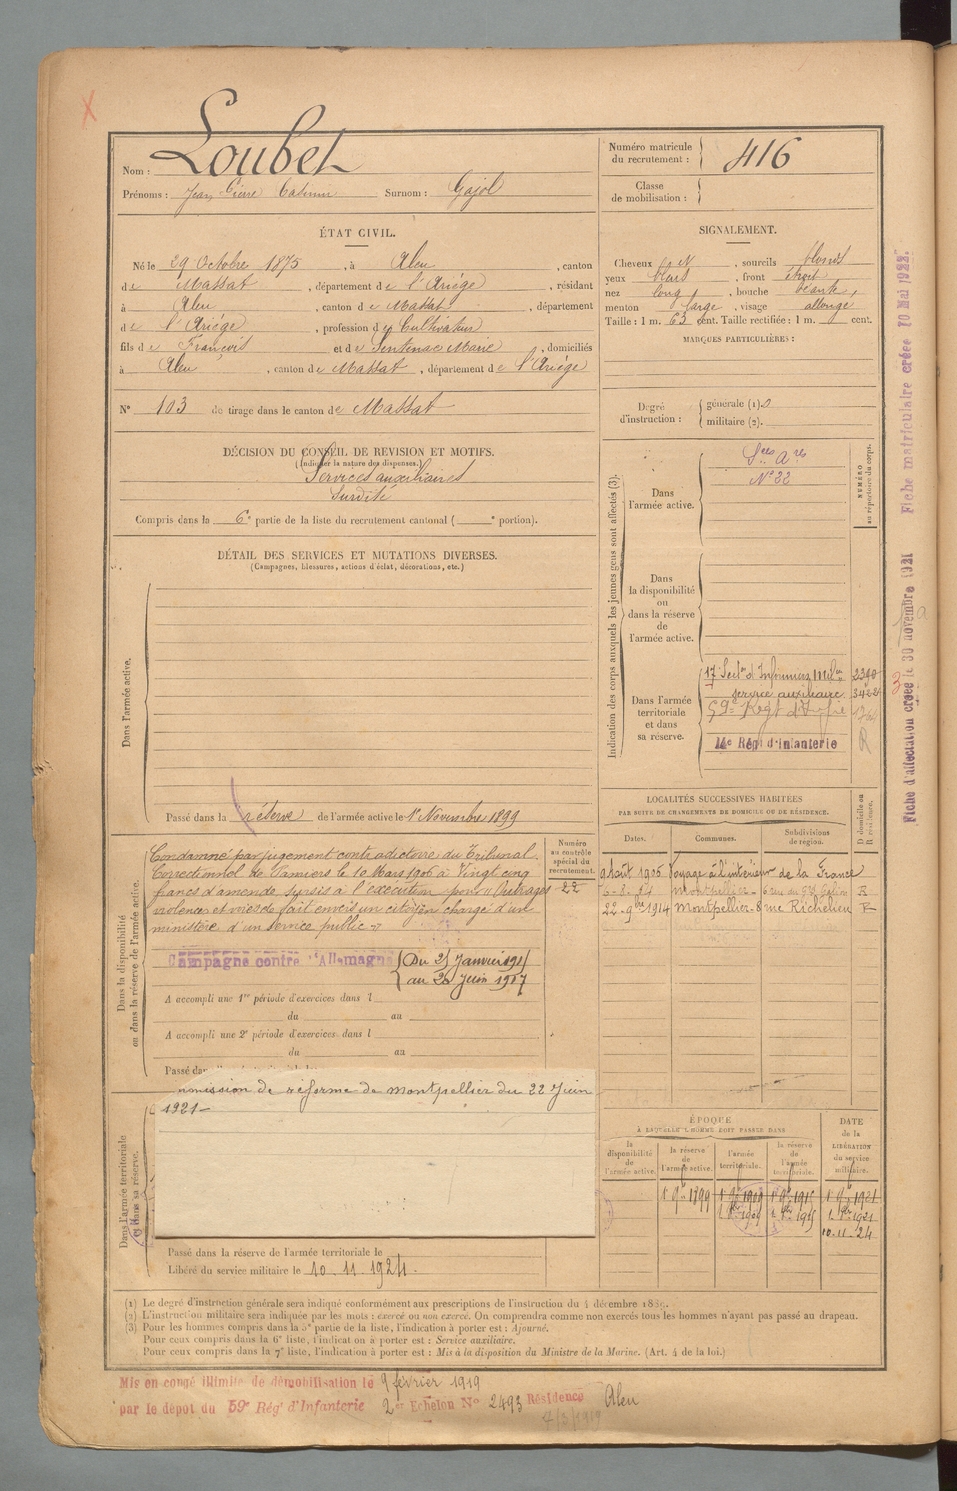 Nom : Loubet
Prénoms : Jean Pierre Casimir Surnom : Gajol
ÉTAT CIVIL.
Né le 29 Octobre 1875, à Aleu, canton
de Massat, département de l'Ariège, résidant
à Aleu, canton de Massat, département
de l'Ariège, profession de Cultivateur
fils de François et de Sentenac Marie, domiciliés
à Aleu, canton de Massat, département de l'Ariège
N° 103 de tirage dans le canton de Massat
DÉCISION DU CONSEIL DE REVISION ET MOTIFS.
(Indiquer la nature des dispenses.)
Services auxiliaires
Surdité
Compris dans la 6e partie de la liste du recrutement cantonal ( e portion).
DÉTAIL DES SERVICES ET MUTATIONS DIVERSES.
(Campagnes, blessures, actions d'éclat, décorations, etc.)
Dans l'armée active.
Passé dans la réserve de l'armée active le 1er Novembre 1899
Dans la disponibilité
ou dans la réserve de l'armée active.
Condamné par jugement contradictoire du Tribunal
Correctionnel de Pamiers le 10 Mars 1906 à Vingt cinq
francs d'amende sursis à l'exécution pour "Outrages
violences et voies de fait envers un citoyen chargé d'un
ministère d'un service public"
Numéro
au contrôle
spécial du
recrutement.
22
Campagne contre l'Allemagne Du 25 Janvier
au Juin 1917
A accompli une 1re période d'exercices dans l
du au
A accompli une 2e période d'exercices dans l
du au
Passé dan
mmission de réforme de Montpellier du 22 Juin
1921-
Dans l'armée territoriale
et dans sa réserve.
Passé dans la réserve de l'armée territoriale le
Libéré du service militaire le 10.11.1924.
Numéro matricule
du recrutement : 416
Classe
de mobilisation :
SIGNALEMENT.
Cheveux N, sourcils blonds
yeux bleus, front étroit
nez long, bouche béante,
menton large, visage allongé
Taille : 1 m. 63 cent. Taille rectifiée : 1 m. cent.
MARQUES PARTICULIÈRES :
Degré
d'instruction :
générale (1). 0
militaire (2).
Indication des corps auxquels les jeunes gens sont affectés (3).
NUMÉRO
au répertoire du corps.
Dans
l'armée active.
Sces Ares
N° 22
Dans
la disponibilité
ou
dans la réserve
de
l'armée active.
Dans l'armée
territoriale
et dans
sa réserve.
17e Secton d'Infirmiers
service auxiliaire
59e Régt d'Infie
14e Rég' d'Infanterie
R
LOCALITÉS SUCCESSIVES HABITÉES
PAR SUITE DE CHANGEMENTS DE DOMICILE OU DE RÉSIDENCE.
Dates. Communes. Subdivisions
de région. D domicile ou
R résidence.
9 Août 1906 Voyage à l'intérieur de la France
Montpellier R
22-9bre 1914 Montpellier - 8 rue Richelieu R
ÉPOQUE
À LAQUELLE L'HOMME DOIT PASSER DANS
la
disponibilité
de
l'armée active.
la réserve
de
l'armée active.
l'armée
territoriale.
la réserve
de
l'armée
territoriale.
DATE
de la
LIBÉRATION
du service
militaire.
1er 9bre 1899 1er 9bre 1909 1er 9bre 1915 1er 9bre 1921
10.11.24
(1) Le degré d'instruction générale sera indiqué conformément aux prescriptions de l'instruction du 4 décembre 1889.
(2) L'instruction militaire sera indiquée par les mots : exercé ou non exercé. On comprendra comme non exercés tous les hommes n'ayant pas passé au drapeau.
(3) Pour les hommes compris dans la 5e partie de la liste, l'indication à porter est : Ajourné.
Pour ceux compris dans la 6e liste, l'indication à porter est : Service auxiliaire.
Pour ceux compris dans la 7e liste, l'indication à porter est : Mis à la disposition du Ministre de la Marine. (Art. 4 de la loi.)
Mis en congé illimité de démobilisation le 9 février 1919
par le dépôt du 59e Rég' d'Infanterie 2e Echelon N° 2493 Résidence Aleu
Fiche d'affectation créée le 30 novembre 1921 Fiche matriculaire créée 10 Mai 1922.